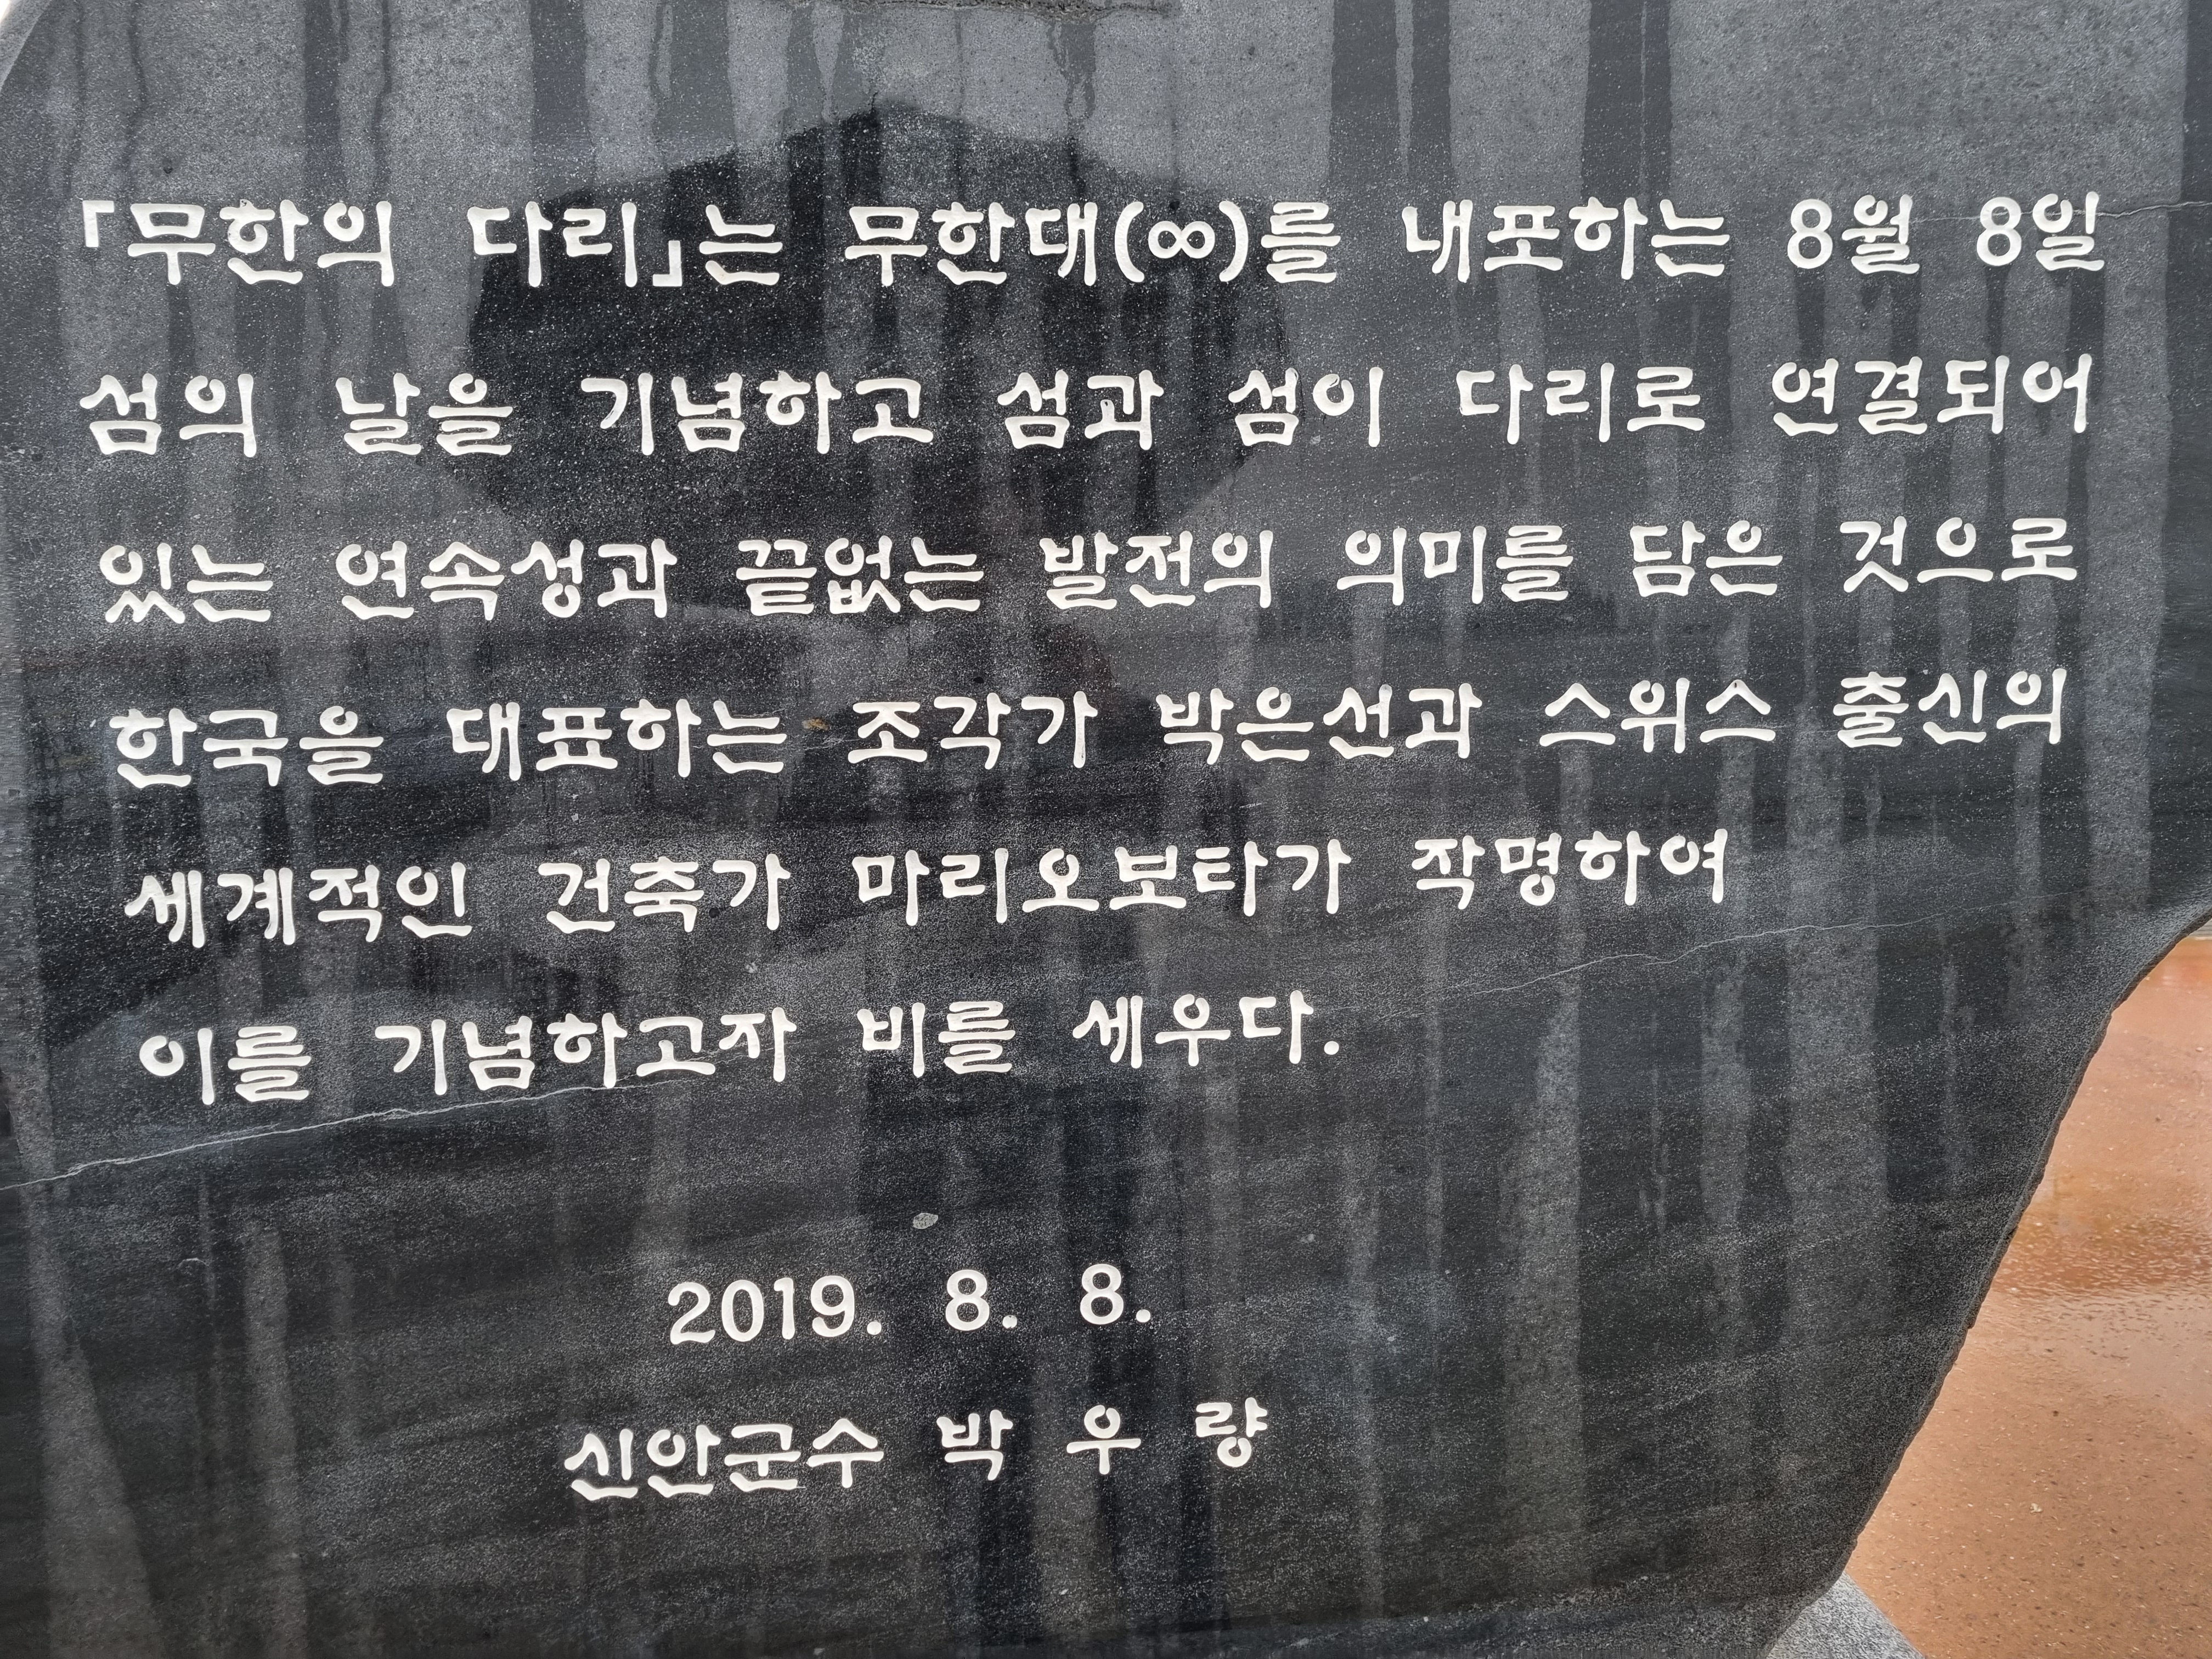 「무한의 다리」는 무한대(∞)를 내포하는 8월 8일
섬의 날을 기념하고 섬과 섬이 다리로 연결되어
있는 연속성과 끝없는 발전의 의미를 담은 것으로
한국을 대표하는 조각가 박은선과 스위스 출신의
세계적인 건축가 마리오보타가 작명하여
이를 기념하고자 비를 세우다.
2019. 8. 8.
신안군수 박 우 량